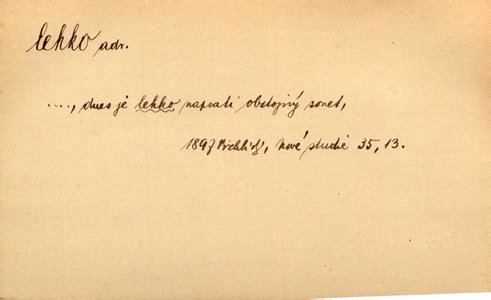 lehko adv.
...., dnes je lehko napsati obstojný sonet,
1897 Vrchlický, Nové studie 35, 13.